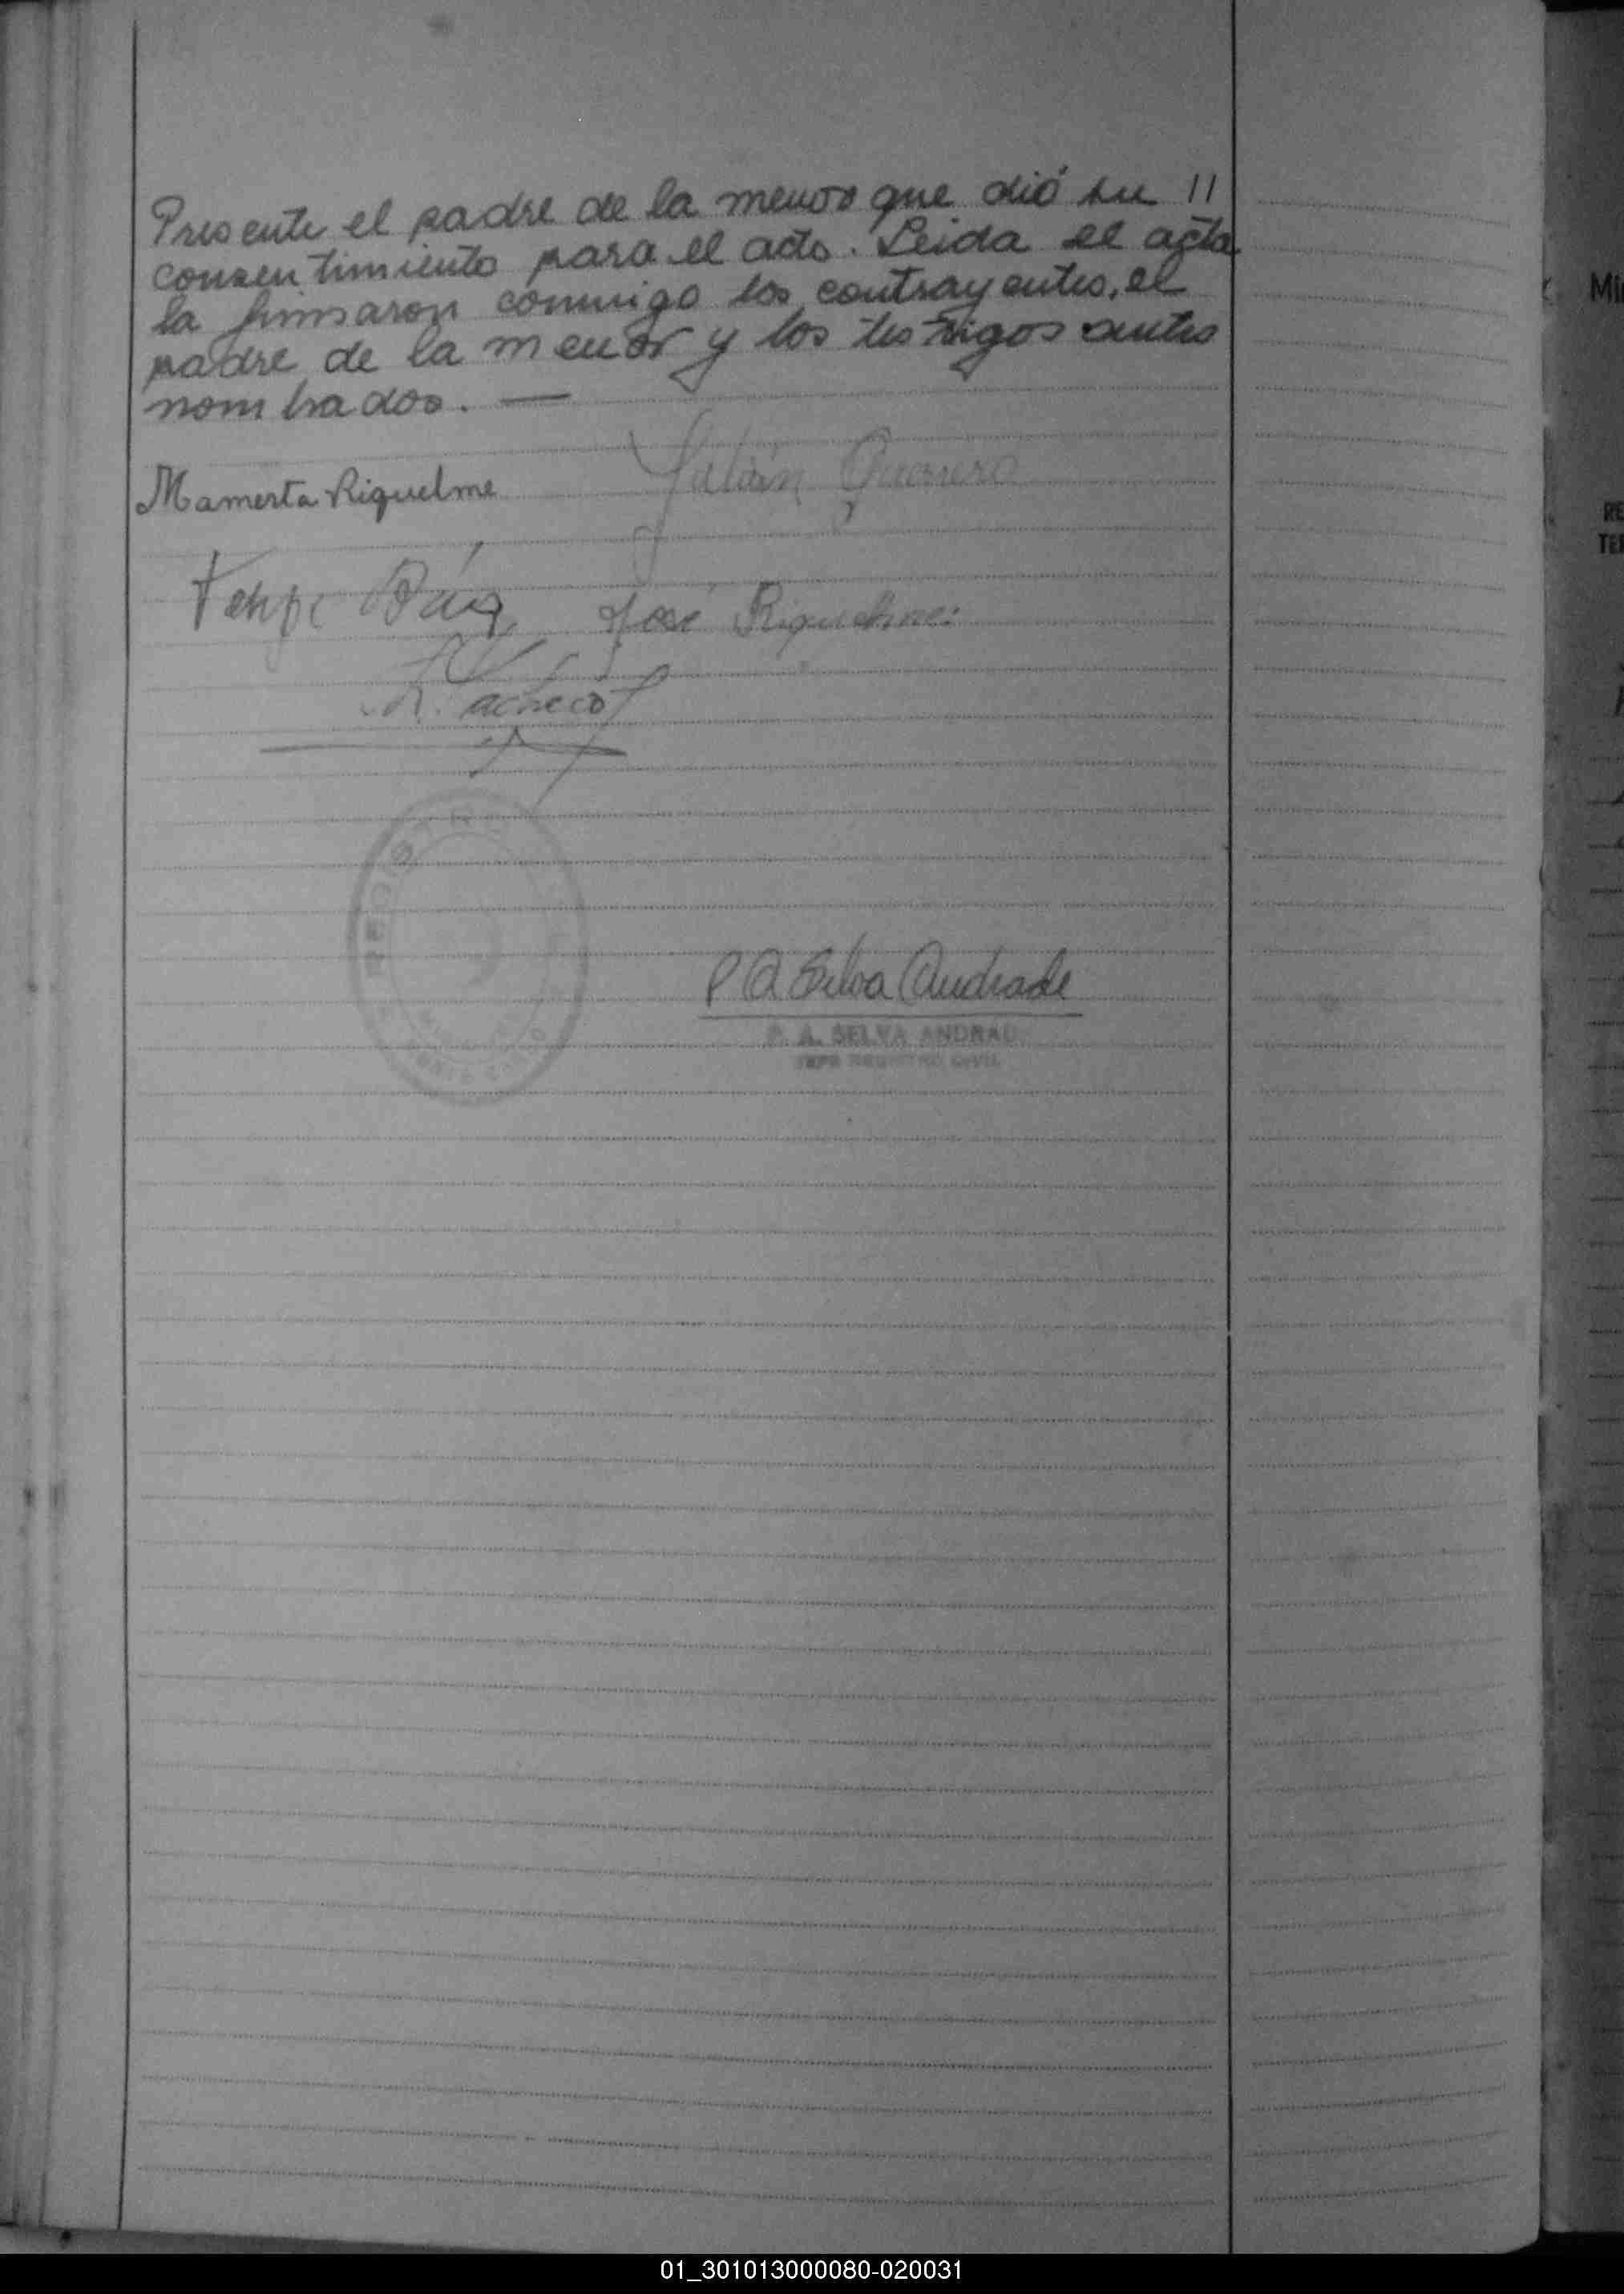 Presente el padre de la menor que dió su //
consentimiento para el acto. Leida el acta
la firmaron conmigo los contrayentes, el
padre de la menor y los testigos antes
nombrados. —
Mamerta Riquelme Julián Guerrero
Felipe Báez José Riquelme
Pacheco
REGISTRO
P A Selva Andrade
P. A. SELVA ANDRADE
JEFE REGISTRO CIVIL
01_301013000080-020031